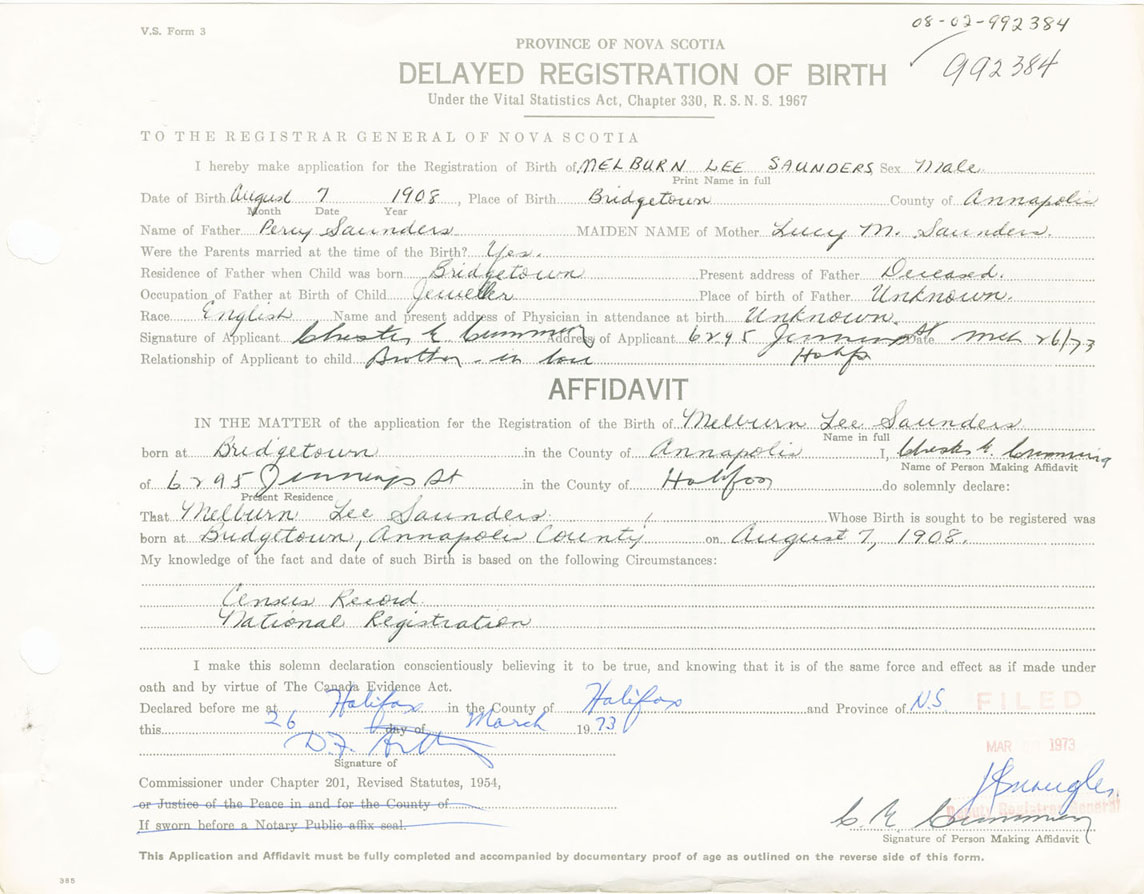 V.S. Form 3
08-02-992384
992384
PROVINCE OF NOVA SCOTIA
DELAYED REGISTRATION OF BIRTH
Under the Vital Statistics Act, Chapter 330, R. S. N. S. 1967
TO THE REGISTRAR GENERAL OF NOVA SCOTIA
I hereby make application for the Registration of Birth of MELBURN LEE SAUNDERS Sex Male
Print Name in full
Date of Birth August 7 1908, Place of Birth Bridgetown County of Annapolis
Month Date Year
Name of Father Percy Saunders MAIDEN NAME of Mother Lucy M. Saunders.
Were the Parents married at the time of the Birth? Yes.
Residence of Father when Child was born Bridgetown Present address of Father Deceased.
Occupation of Father at Birth of Child Jeweller Place of birth of Father Unknown.
Race English Name and present address of Physician in attendance at birth Unknown.
Signature of Applicant Chester Cumming Address of Applicant 6295 Jennings St Date Mch 26/73
Relationship of Applicant to child Brother-in law Halifax
AFFIDAVIT
IN THE MATTER of the application for the Registration of the Birth of Melburn Lee Saunders
Name in full
born at Bridgetown in the County of Annapolis I, Chester Cumming
Name of Person Making Affidavit
of 6295 Jennings St in the County of Halifax do solemnly declare:
Present Residence
That Melburn Lee Saunders Whose Birth is sought to be registered was
born at Bridgetown, Annapolis County on August 7, 1908.
My knowledge of the fact and date of such Birth is based on the following Circumstances:
Census Record.
National Registration
I make this solemn declaration conscientiously believing it to be true, and knowing that it is of the same force and effect as if made under
oath and by virtue of The Canada Evidence Act.
Declared before me at Halifax in the County of Halifax and Province of N.S.
FILED
this 26 day of March 1973
MAR 1973
Signature of
Commissioner under Chapter 201, Revised Statutes, 1954,
or Justice of the Peace in and for the County of
Deputy Registrar General
If sworn before a Notary Public affix seal.
Cumming
Signature of Person Making Affidavit
This Application and Affidavit must be fully completed and accompanied by documentary proof of age as outlined on the reverse side of this form.
385